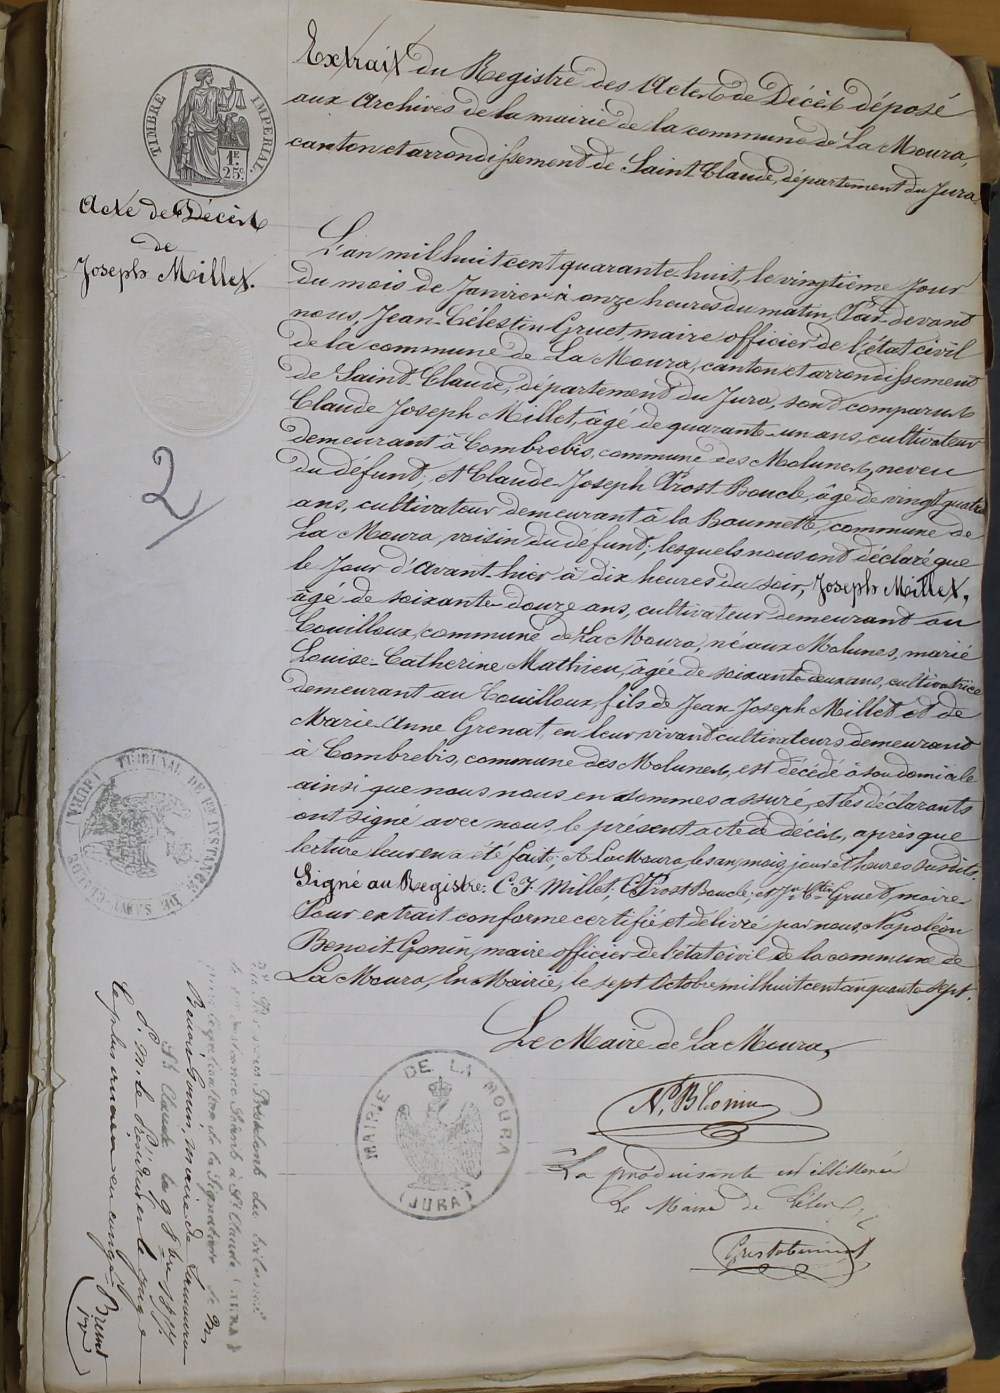 Extrait du Registre des Actes de Décès déposé
aux Archives de la mairie de la commune de La Moura,
canton et arrondissement de Saint Claude, département du Jura.
TIMBRE IMPERIAL
1F.
25c.
Acte de Décès
de
Joseph Millet.
L'an mil huit cent quarante huit, le vingtième jour
du mois de Janvier à onze heures du matin, Par devant
nous, Jean-Célestin Gruet, maire officier de l'état civil
de la commune de La Moura, canton et arrondissement
de Saint-Claude, département du Jura, sont comparus
Claude Joseph Millet, âgé de quarante-un ans, cultivateur
demeurant à Combrebis, commune des Molunes, neveu
du défunt, et Claude Joseph Prost Boucle, âgé de vingt quatre
ans, cultivateur demeurant à la Baumette, commune de
La Moura, voisin du défunt; lesquels nous ont déclaré que
le Jour d'Avant-hier à dix heures du soir, Joseph Millet,
âgé de soixante-douze ans, cultivateur demeurant au
Couilloux, commune de La Moura, né aux Molunes, marié
Louise-Catherine Mathieu, âgée de soixante-deux ans, cultivatrice
demeurant au Couilloux, fils de Jean Joseph Millet et de
Marie-Anne Grenat, en leur vivant cultivateurs demeurant
à Combrebis, commune des Molunes, est décédé à son domicile
ainsi que nous nous en sommes assuré, et les déclarants
ont signé avec nous, le présent acte de décès, après que
lecture leur en a été faite; A La Moura, les an, mois, jour et heures susdits.
Signé au Registre: C. J. Millet, C. J. Prost Boucle, et Jn Ctin Gruet, maire
Pour extrait conforme certifié et délivré, par nous Napoléon
Benoit-Gonin, maire officier de l'état civil de la commune de
La Moura, En Mairie, le sept Octobre mil huit cent cinquante sept.
Le Maire de La Moura,
N. B Gonin
La produisante est illitérée
Le Maire de
2
TRIBUNAL DE 1RE INSTANCE DE SAINT-CLAUDE (JURA)
MAIRIE DE LA MOURA
(JURA)
Vu par Nous Président du tribunal
de 1re instance séant à St Claude (JURA)
pour légalisation de la signature de M.
Benoit-Gonin, maire de Lamoura
St Claude le 9 8bre 1857.
P. M. le Président le juge
le plus ancien en congé